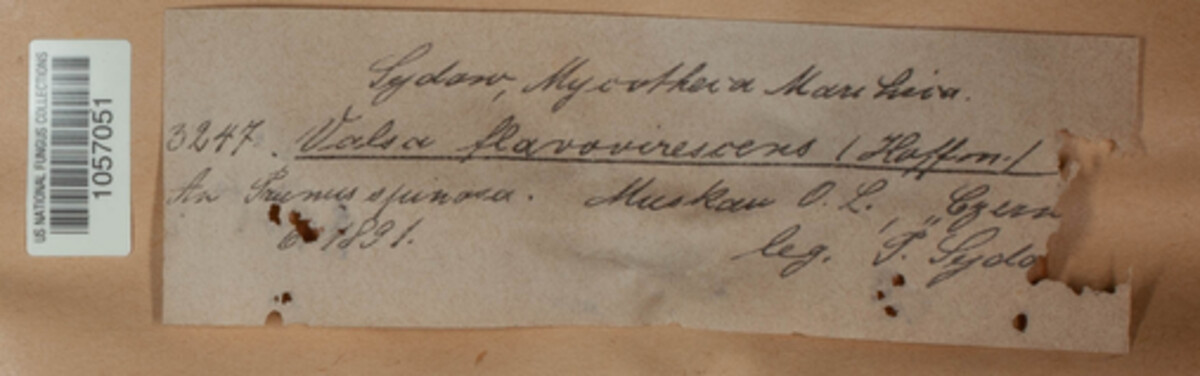 US NATIONAL FUNGUS COLLECTIONS
1057051
Sydow, Mycotheca Marchica.
3247. Valsa flavovirescens (Hoffm.)
An Prunus spinosa. Muskau O. L., „Czern
6 1891. leg. P. Sydo